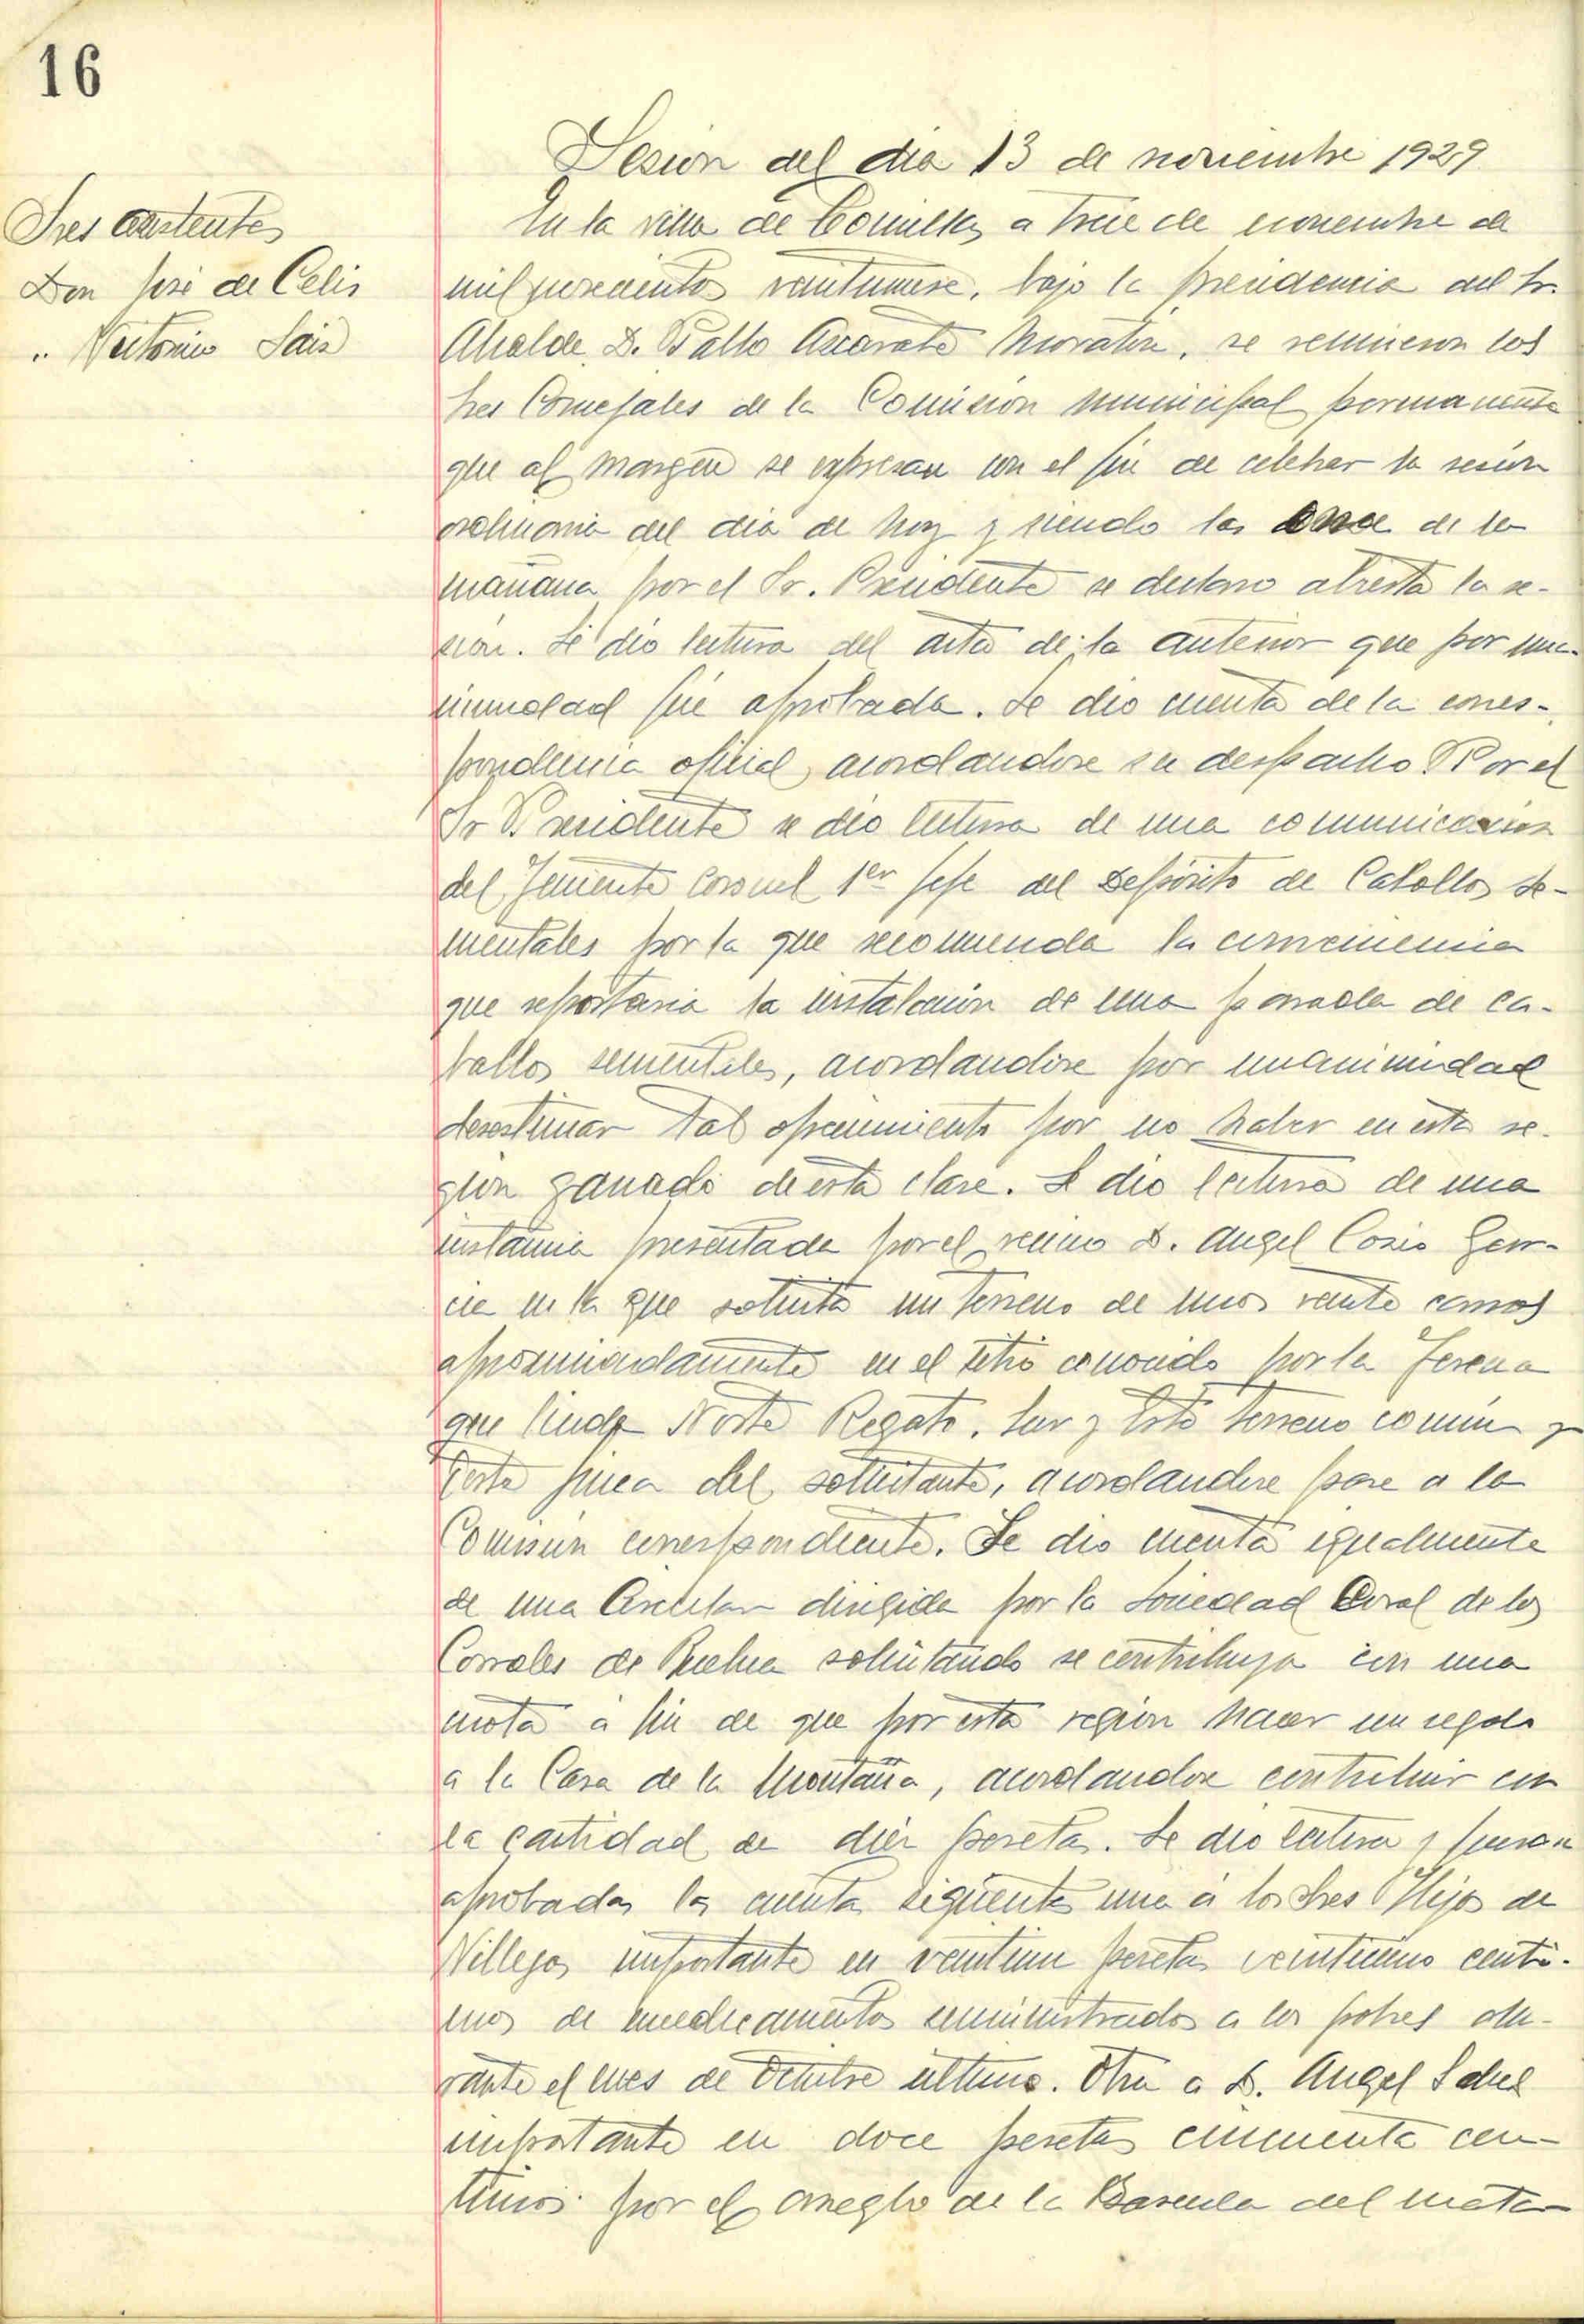 16
Sesión del día 13 de noviembre 1929
Sres asistentes
Don José de Celis
" Victorino Saiz
En la villa de Comillas a trece de noviembre de
mil novecientos veintinueve, bajo la presidencia del Sr.
Alcalde D. Pablo Azcarate Moratin, se reunieron los
Sres Concejales de la Comisión municipal permanente
que al margen se expresan con el fin de celebrar la sesión
ordinaria del día de hoy y siendo las once de la
mañana por el Sr. Presidente se declaro abierta la se-
sión. Se dió lectura del acta de la anterior que por una-
nimidad fué aprobada. Se dio cuenta de la corres-
pondencia oficial, acordandose su despacho. Por el
Sr Presidente se dió lectura de una comunicación
del Teniente Coronel 1er Jefe del Depósito de Caballos Se-
mentales por la que recomienda la conveniencia
que reportaria la instalación de una parada de ca-
ballos sementales, acordandose por unanimidad
desestimar tal ofrecimiento por no haber en esta re-
gión ganado de esta clase. Se dio lectura de una
instancia presentada por el vecino D. Angel Cosio Gar-
cia en la que solicita un terreno de unos veinte carros
aproximadamente en el sitio conocido por la Teresa
que linda Norte Regato, Sur y Este terreno común y
Oeste finca del solicitante, acordandose pase a la
Comisión correspondiente. Se dio cuenta igualmente
de una Circular dirigida por la Sociedad Coral de los
Corrales de Buelna solicitando se contribuya con una
cuota a fin de que por esta región hacer un regalo
a la Casa de la Montaña, acordandose contribuir con
la cantidad de diez pesetas. Se dio lectura y fueron
aprobadas las cuentas siguientes una a los Sres Hijos de
Villegas importante en veintiun pesetas veinticinco centi-
mos de medicamentos suministrados a los pobres du-
rante el mes de Octubre ultimo. Otra a D. Angel Sabel
importante en doce pesetas cincuenta cen-
timos por el arreglo de la Bascula del mata-